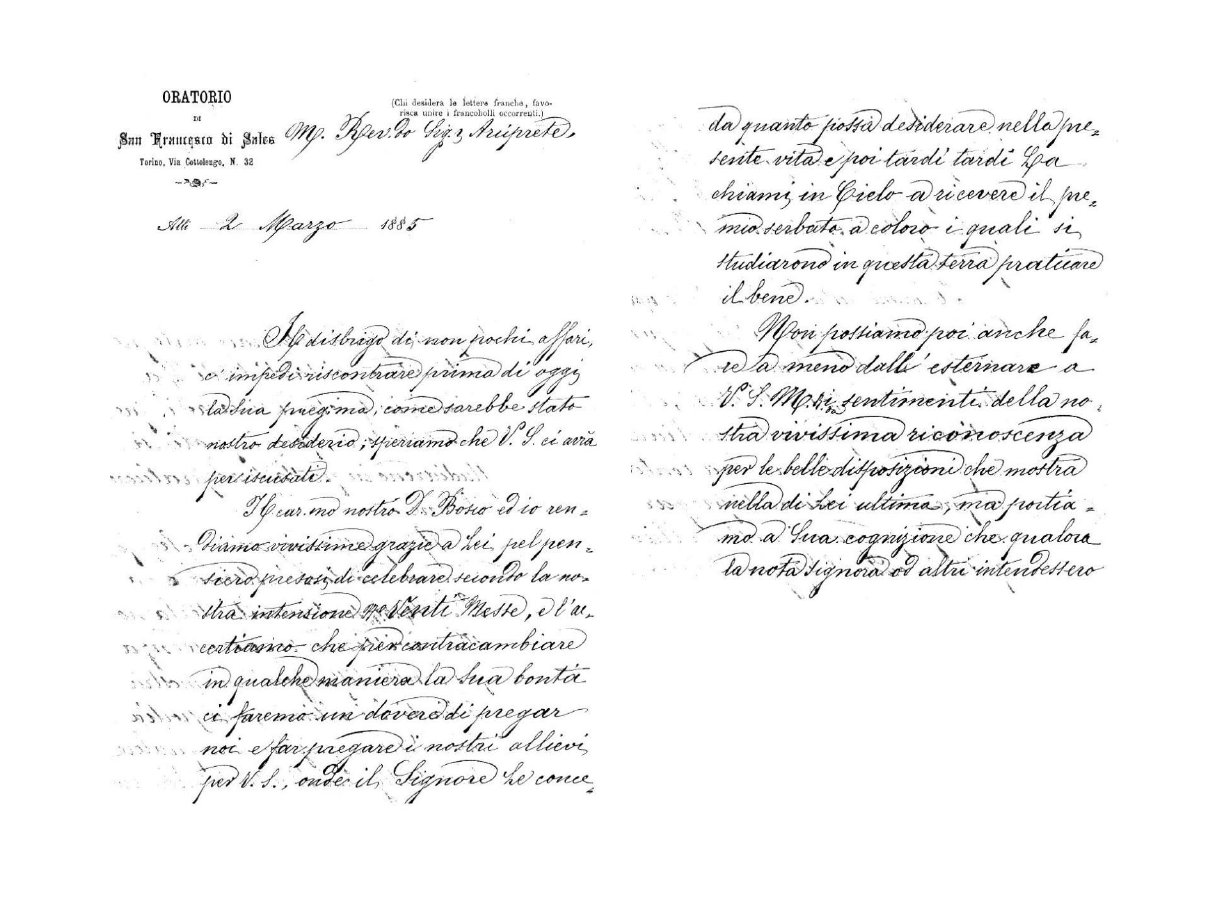 ORATORIO
DI
San Francesco di Sales
Torino, Via Cottolengo, N. 32
(Chi desidera le lettere franche, favo-
risca unire i francobolli occorrenti.)
M. Rev.do Sig.r Arciprete,
Addi 2 Marzo 1885
Il disbrigo di non pochi affari,
c'impedì riscontrare prima di oggi
la Sua preg.ma, come sarebbe stato
nostro desiderio; speriamo che V. S. ci avrà
per iscusati.
Il car.mo nostro D. Bosco ed io ren-
diamo vivissime grazie a Lei pel pen-
siero presosi di celebrare secondo la no-
stra intensione Venti Messe, e l'ac-
certiamo che per contracambiare
in qualche maniera la Sua bontà
ci faremo un dovere di pregar
noi e far pregare i nostri allievi
per V. S., onde il Signore Le conce-
da quanto possa desiderare nella pre-
sente vita e poi tardi tardi La
chiami in Cielo a ricevere il pre-
mio serbato a coloro i quali si
studiarono in questa terra praticare
il bene.
Non possiamo poi anche fa-
re a meno dall' esternare a
V. S. M. i sentimenti della no-
stra vivissima riconoscenza
per le belle disposizioni che mostra
nella di Lei ultima, ma portia-
mo a Sua cognizione che qualora
la nota Signora od altri intendessero